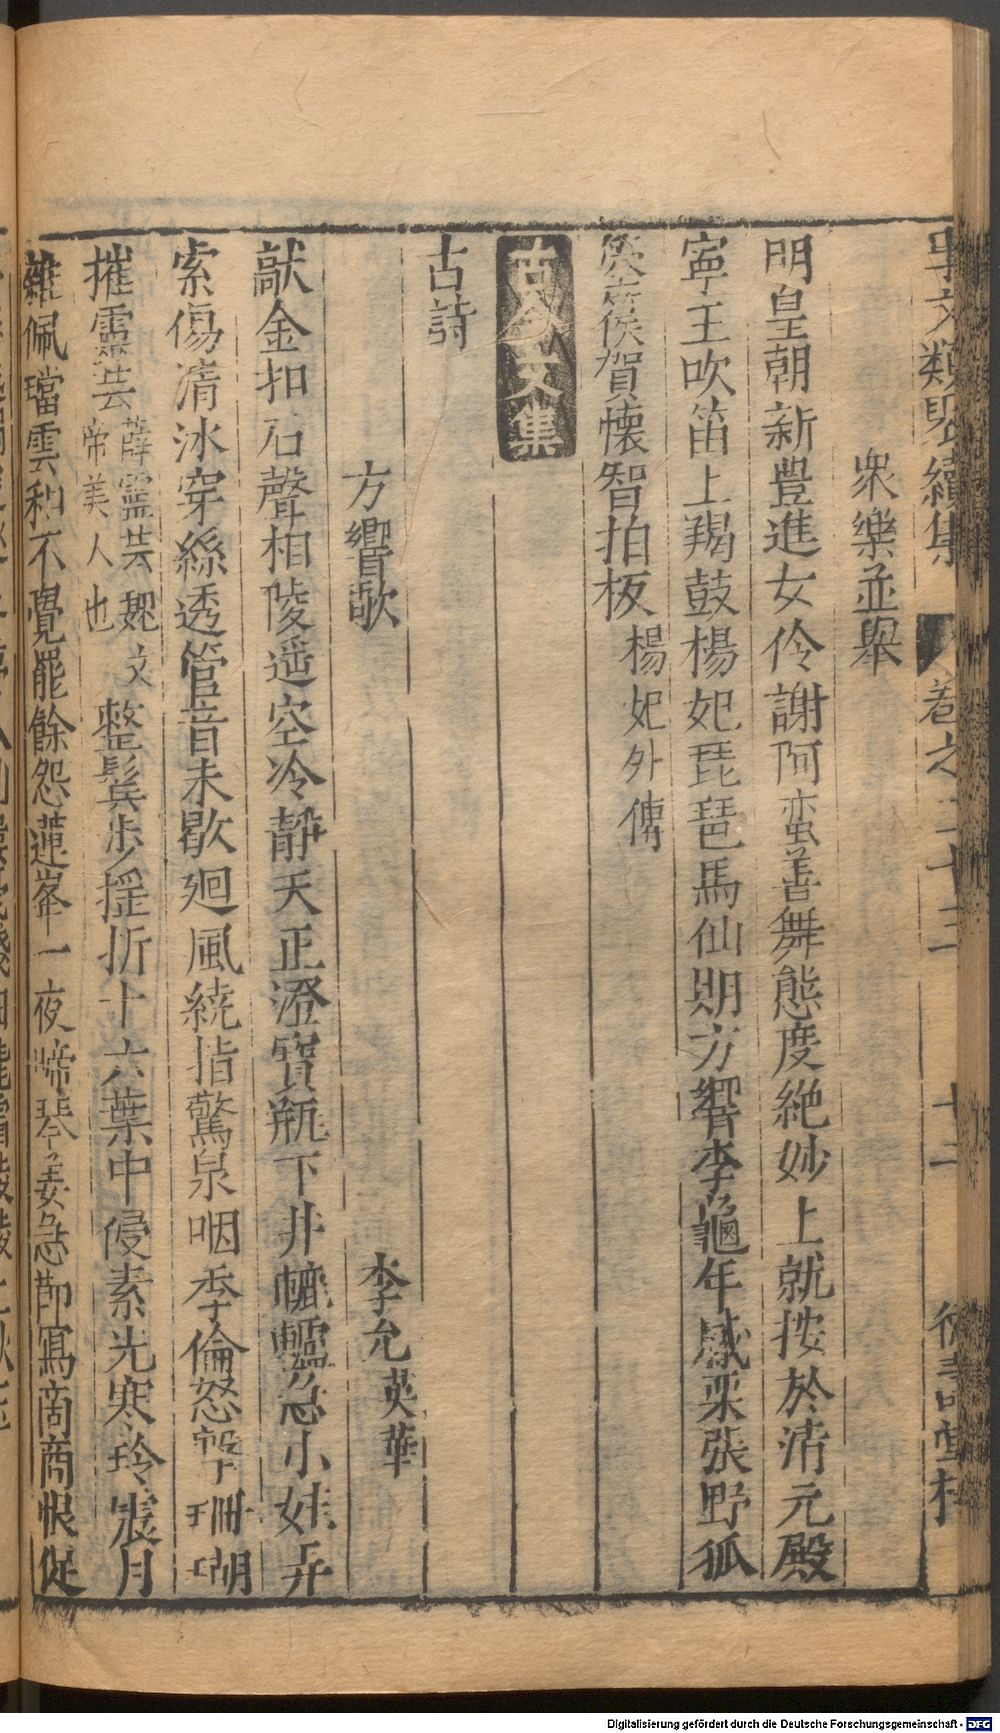 事文類聚續集 卷之二十三 十二
衆樂並舉
明皇朝新豊進女伶謝阿蛮善舞態度絶妙上就按於清元殿
寧王吹笛上羯鼓楊妃琵琶馬仙期方響李龜年觱栗張野狐
箜篌賀懷智拍板楊妃外傳
古今文集
古詩
方響歌 李允英華
獻金扣石聲相陵遥空冷靜天正澄寳瓶下井轆轤急小娃弄
索傷清冰穿絲透管音未歇廻風繞指驚泉咽季倫怒擊珊瑚
摧靈芸薛靈芸魏文帝美人也整鬂步揺折十六葉中侵素光寒玲震月
雜佩璫雲和不覺罷餘怨蓮峯一夜啼琴姜急節寫商商恨促
Digitalisierung gefördert durch die Deutsche Forschungsgemeinschaft - DFG